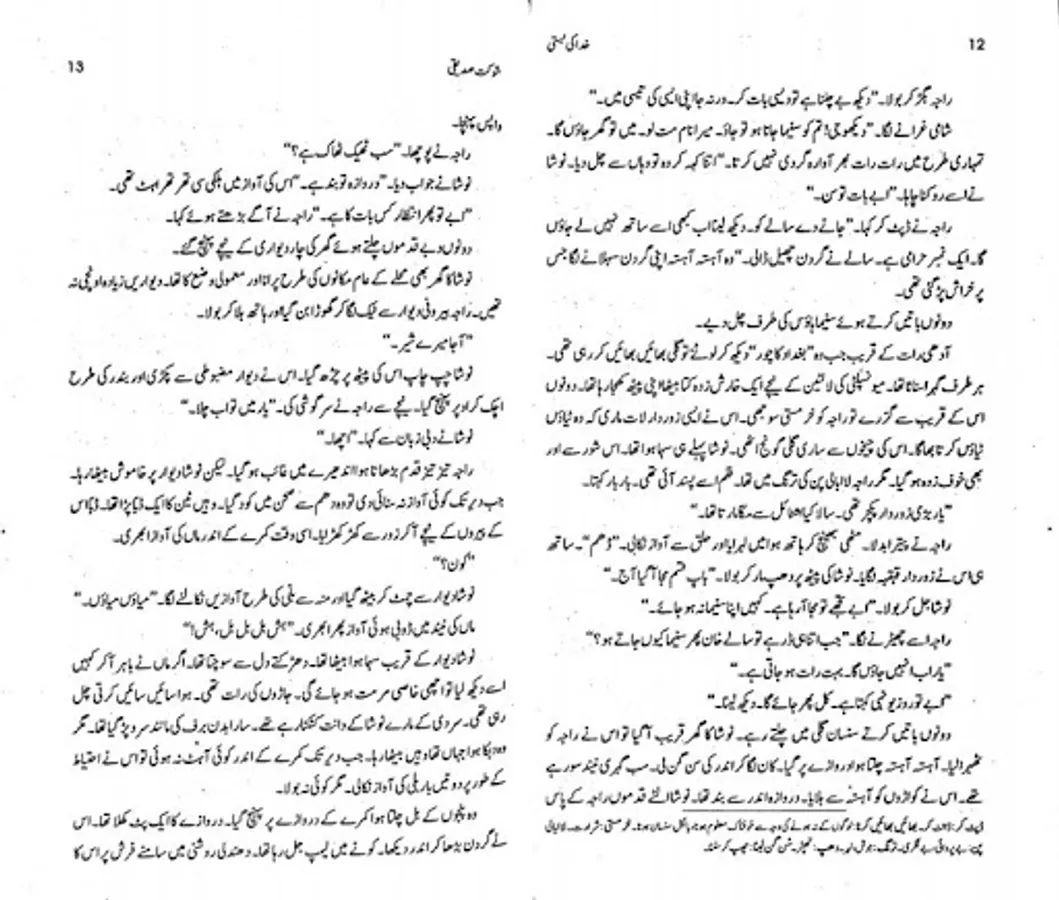 12
خدا کی بستی
راجہ بگڑ کر بولا۔ ”دیکھ بے چلنا ہے تو ویسی بات کر۔ ورنہ جا اپنی ایسی کی تیسی میں۔“
شامی غرانے لگا۔ ”دیکھو جی! تم کو سنیما جانا ہو تو جاؤ۔ میرا نام مت لو۔ میں تو گھر جاؤں گا۔
تمہاری طرح میں رات رات بھر آوارہ گردی نہیں کرتا۔“ اتنا کہہ کر وہ تو وہاں سے چل دیا۔ نوشا
نے اسے روکنا چاہا۔ ”ابے بات تو سن۔“
راجہ نے ڈپٹ کر کہا۔ ”جانے دے سالے کو۔ دیکھ لینا اب کبھی اسے ساتھ نہیں لے جاؤں
گا۔ ایک نمبر حرامی ہے۔ سالے نے گردن چھیل ڈالی۔“ وہ آہستہ آہستہ اپنی گردن سہلانے لگا جس
پر خراش پڑ گئی تھی۔
دونوں باتیں کرتے ہوئے سنیما ہاؤس کی طرف چل دیے۔
آدھی رات کے قریب جب وہ ”بغداد کا چور“ دیکھ کر لوٹے تو گلی بھائیں بھائیں کر رہی تھی۔
ہر طرف گہرا سناٹا تھا۔ میونسپلٹی کی لالٹین کے نیچے ایک خارش زدہ کتا بیٹھا اپنی پیٹھ کھجا رہا تھا۔ دونوں
اس کے قریب سے گزرے تو راجہ کو خرمستی سوجھی۔ اس نے ایسی زور دار لات ماری کہ وہ ٹیاؤں
ٹیاؤں کرتا بھاگا۔ اس کی چیخوں سے ساری گلی گونج اٹھی۔ نوشا پہلے ہی سہما ہوا تھا۔ اس شور سے اور
بھی خوف زدہ ہو گیا۔ مگر راجہ لاابالی پن کی ترنگ میں تھا۔ فلم اسے پسند آئی تھی۔ بار بار کہتا۔
”یار بڑی زور دار پکچر تھی۔ سالا کیا اسٹائل سے مکا مارتا تھا۔“
راجہ نے پینترا بدلا۔ مٹھی بھینچ کر ہاتھ ہوا میں لہرایا اور حلق سے آواز نکالی۔ ”ڈھم“۔ ساتھ
ہی اس نے زور دار قہقہہ لگایا۔ نوشا کی پیٹھ پر دھپ مار کر بولا۔ ”باپ قسم مجا آ گیا آج۔“
نوشا جل کر بولا۔ ”ابے تجھے تو مجا آ رہا ہے۔ کہیں اپنا سنیما نہ ہو جائے۔“
راجہ اسے چھیڑنے لگا۔ ”جب اتنا ہی ڈر ہے تو سالے خان پھر سنیما کیوں جاتے ہو؟“
”یار اب نہیں جاؤں گا۔ بہت رات ہو جاتی ہے۔“
”ابے تو روز یونہی کہتا ہے۔ کل پھر جائے گا۔ دیکھ لینا۔“
دونوں باتیں کرتے سنسان گلی میں چلتے رہے۔ نوشا کا گھر قریب آ گیا تو اس نے راجہ کو
ٹھہرا لیا۔ آہستہ آہستہ چلتا ہوا دروازے پر گیا۔ کان لگا کر اندر کی سن گن لی۔ سب گہری نیند سو رہے
تھے۔ اس نے کواڑوں کو آہستہ سے ہلایا۔ دروازہ اندر سے بند تھا۔ نوشا الٹے قدموں راجہ کے پاس
ڈپٹ کر: ڈانٹ کر۔ بھائیں بھائیں کرنا: لوگوں کے نہ ہونے کی وجہ سے خوفناک معلوم ہونا، بالکل سنسان ہونا۔ خرمستی: شرارت۔ لاابالی
پن: بے پروائی، بے فکری۔ ترنگ: جوش، لہر۔ دھپ: تھپڑ۔ سن گن لینا: چھپ کر سننا۔
شوکت صدیقی
13
واپس پہنچا۔
راجہ نے پوچھا۔ ”سب ٹھیک ٹھاک ہے؟“
نوشا نے جواب دیا۔ ”دروازہ تو بند ہے۔“ اس کی آواز میں ہلکی سی تھرتھراہٹ تھی۔
”ابے تو پھر انتظار کس بات کا ہے۔“ راجہ نے آگے بڑھتے ہوئے کہا۔
دونوں دبے قدموں چلتے ہوئے گھر کی چار دیواری کے نیچے پہنچ گئے۔
نوشا کا گھر بھی محلے کے عام مکانوں کی طرح پرانا اور معمولی وضع کا تھا۔ دیواریں زیادہ اونچی نہ
تھیں۔ راجہ بیرونی دیوار سے ٹیک لگا کر گھوڑا بن گیا اور ہاتھ ہلا کر بولا۔
”آ جا میرے شیر۔“
نوشا چپ چاپ اس کی پیٹھ پر چڑھ گیا۔ اس نے دیوار مضبوطی سے پکڑی اور بندر کی طرح
اچک کر اوپر پہنچ گیا۔ نیچے سے راجہ نے سرگوشی کی۔ ”یار میں تو اب چلا۔“
نوشا نے دبی زبان سے کہا۔ ”اچھا۔“
راجہ تیز تیز قدم بڑھاتا ہوا اندھیرے میں غائب ہو گیا۔ لیکن نوشا دیوار پر خاموش بیٹھا رہا۔
جب دیر تک کوئی آواز نہ سنائی دی تو وہ دھم سے صحن میں کود گیا۔ وہیں ٹین کا ایک ڈبا پڑا تھا۔ ڈبا اس
کے پیروں کے نیچے آ کر زور سے کھڑکھڑایا۔ اسی وقت کمرے کے اندر ماں کی آواز ابھری۔
”کون؟“
نوشا دیوار سے چمٹ کر بیٹھ گیا اور منہ سے بلی کی طرح آوازیں نکالنے لگا۔ ”میاؤں میاؤں۔“
ماں کی نیند میں ڈوبی ہوئی آواز پھر ابھری۔ ”ہش بل بل بل، ہش!“
نوشا دیوار کے قریب سہما ہوا بیٹھا تھا۔ دھڑکتے دل سے سوچتا تھا۔ اگر ماں نے باہر آ کر کہیں
اسے دیکھ لیا تو اچھی خاصی مرمت ہو جائے گی۔ جاڑوں کی رات تھی۔ ہوا سائیں سائیں کرتی چل
رہی تھی۔ سردی کے مارے نوشا کے دانت کٹکٹا رہے تھے۔ سارا بدن برف کی مانند سرد پڑ گیا تھا۔ مگر
وہ دبکا ہوا جہاں تھا وہیں بیٹھا رہا۔ جب دیر تک کمرے کے اندر کوئی آہٹ نہ ہوئی تو اس نے احتیاط
کے طور پر دو تین بار بلی کی آواز نکالی۔ مگر کوئی نہ بولا۔
وہ پنجوں کے بل چلتا ہوا کمرے کے دروازے پر پہنچ گیا۔ دروازے کا ایک پٹ کھلا تھا۔ اس
نے گردن بڑھا کر اندر دیکھا۔ کونے میں لیمپ جل رہا تھا۔ دھندلی روشنی میں سامنے فرش پر اس کا